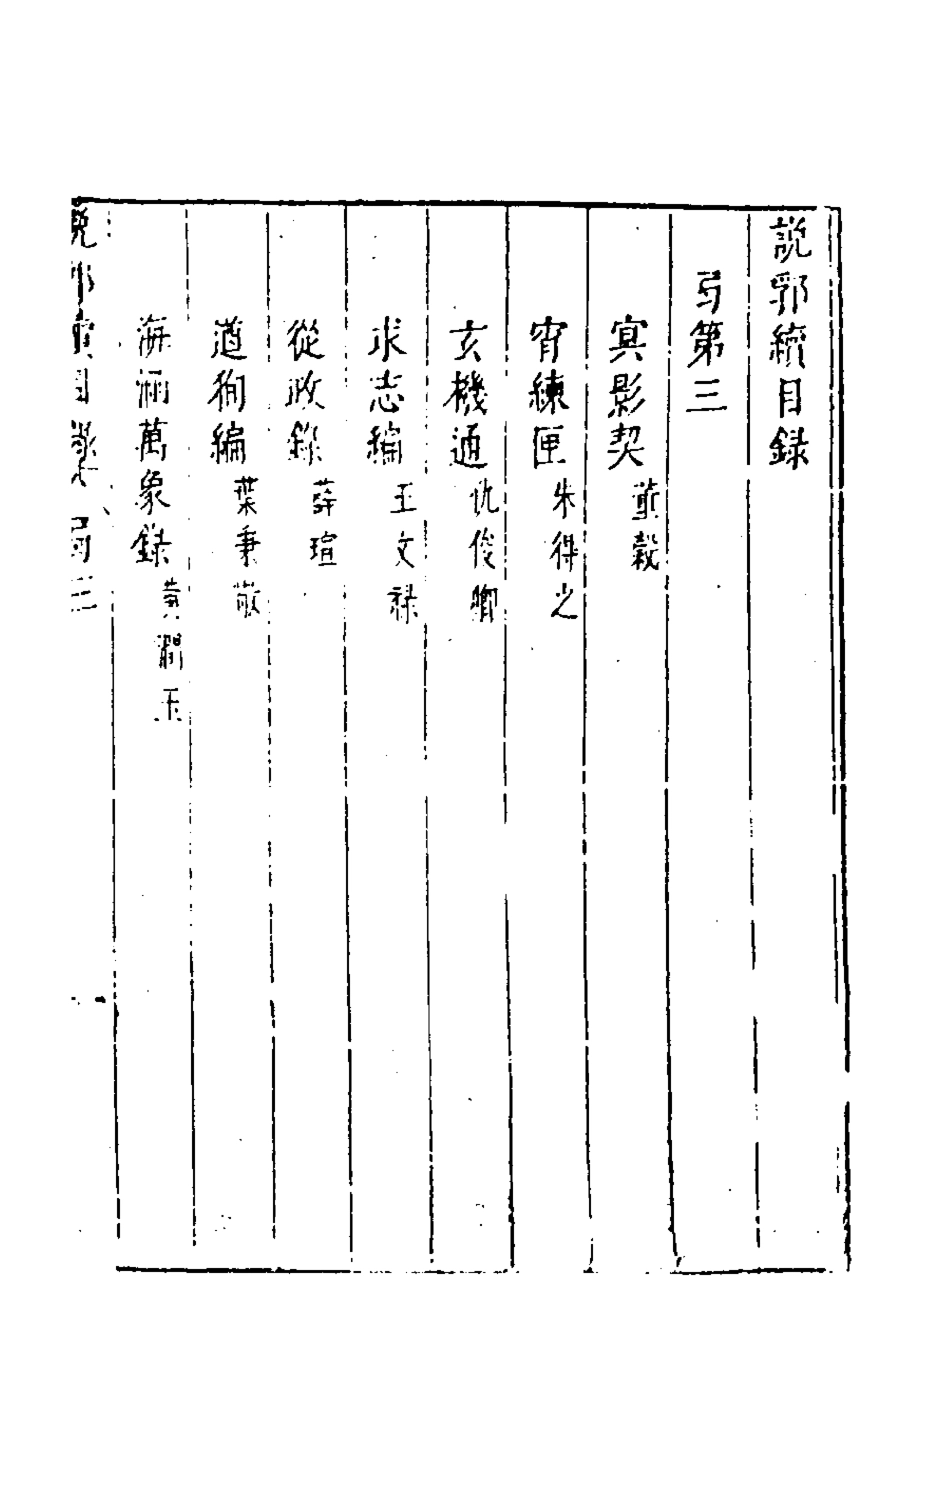 説郛續目録
弓第三
冥影契 董穀
宵練匣 朱得之
玄機通 仇俊卿
求志編 王文禄
從政錄 薛瑄
道徇編 葉秉敬
海涵萬象録 黄潤玉
説郛續目錄 弓三